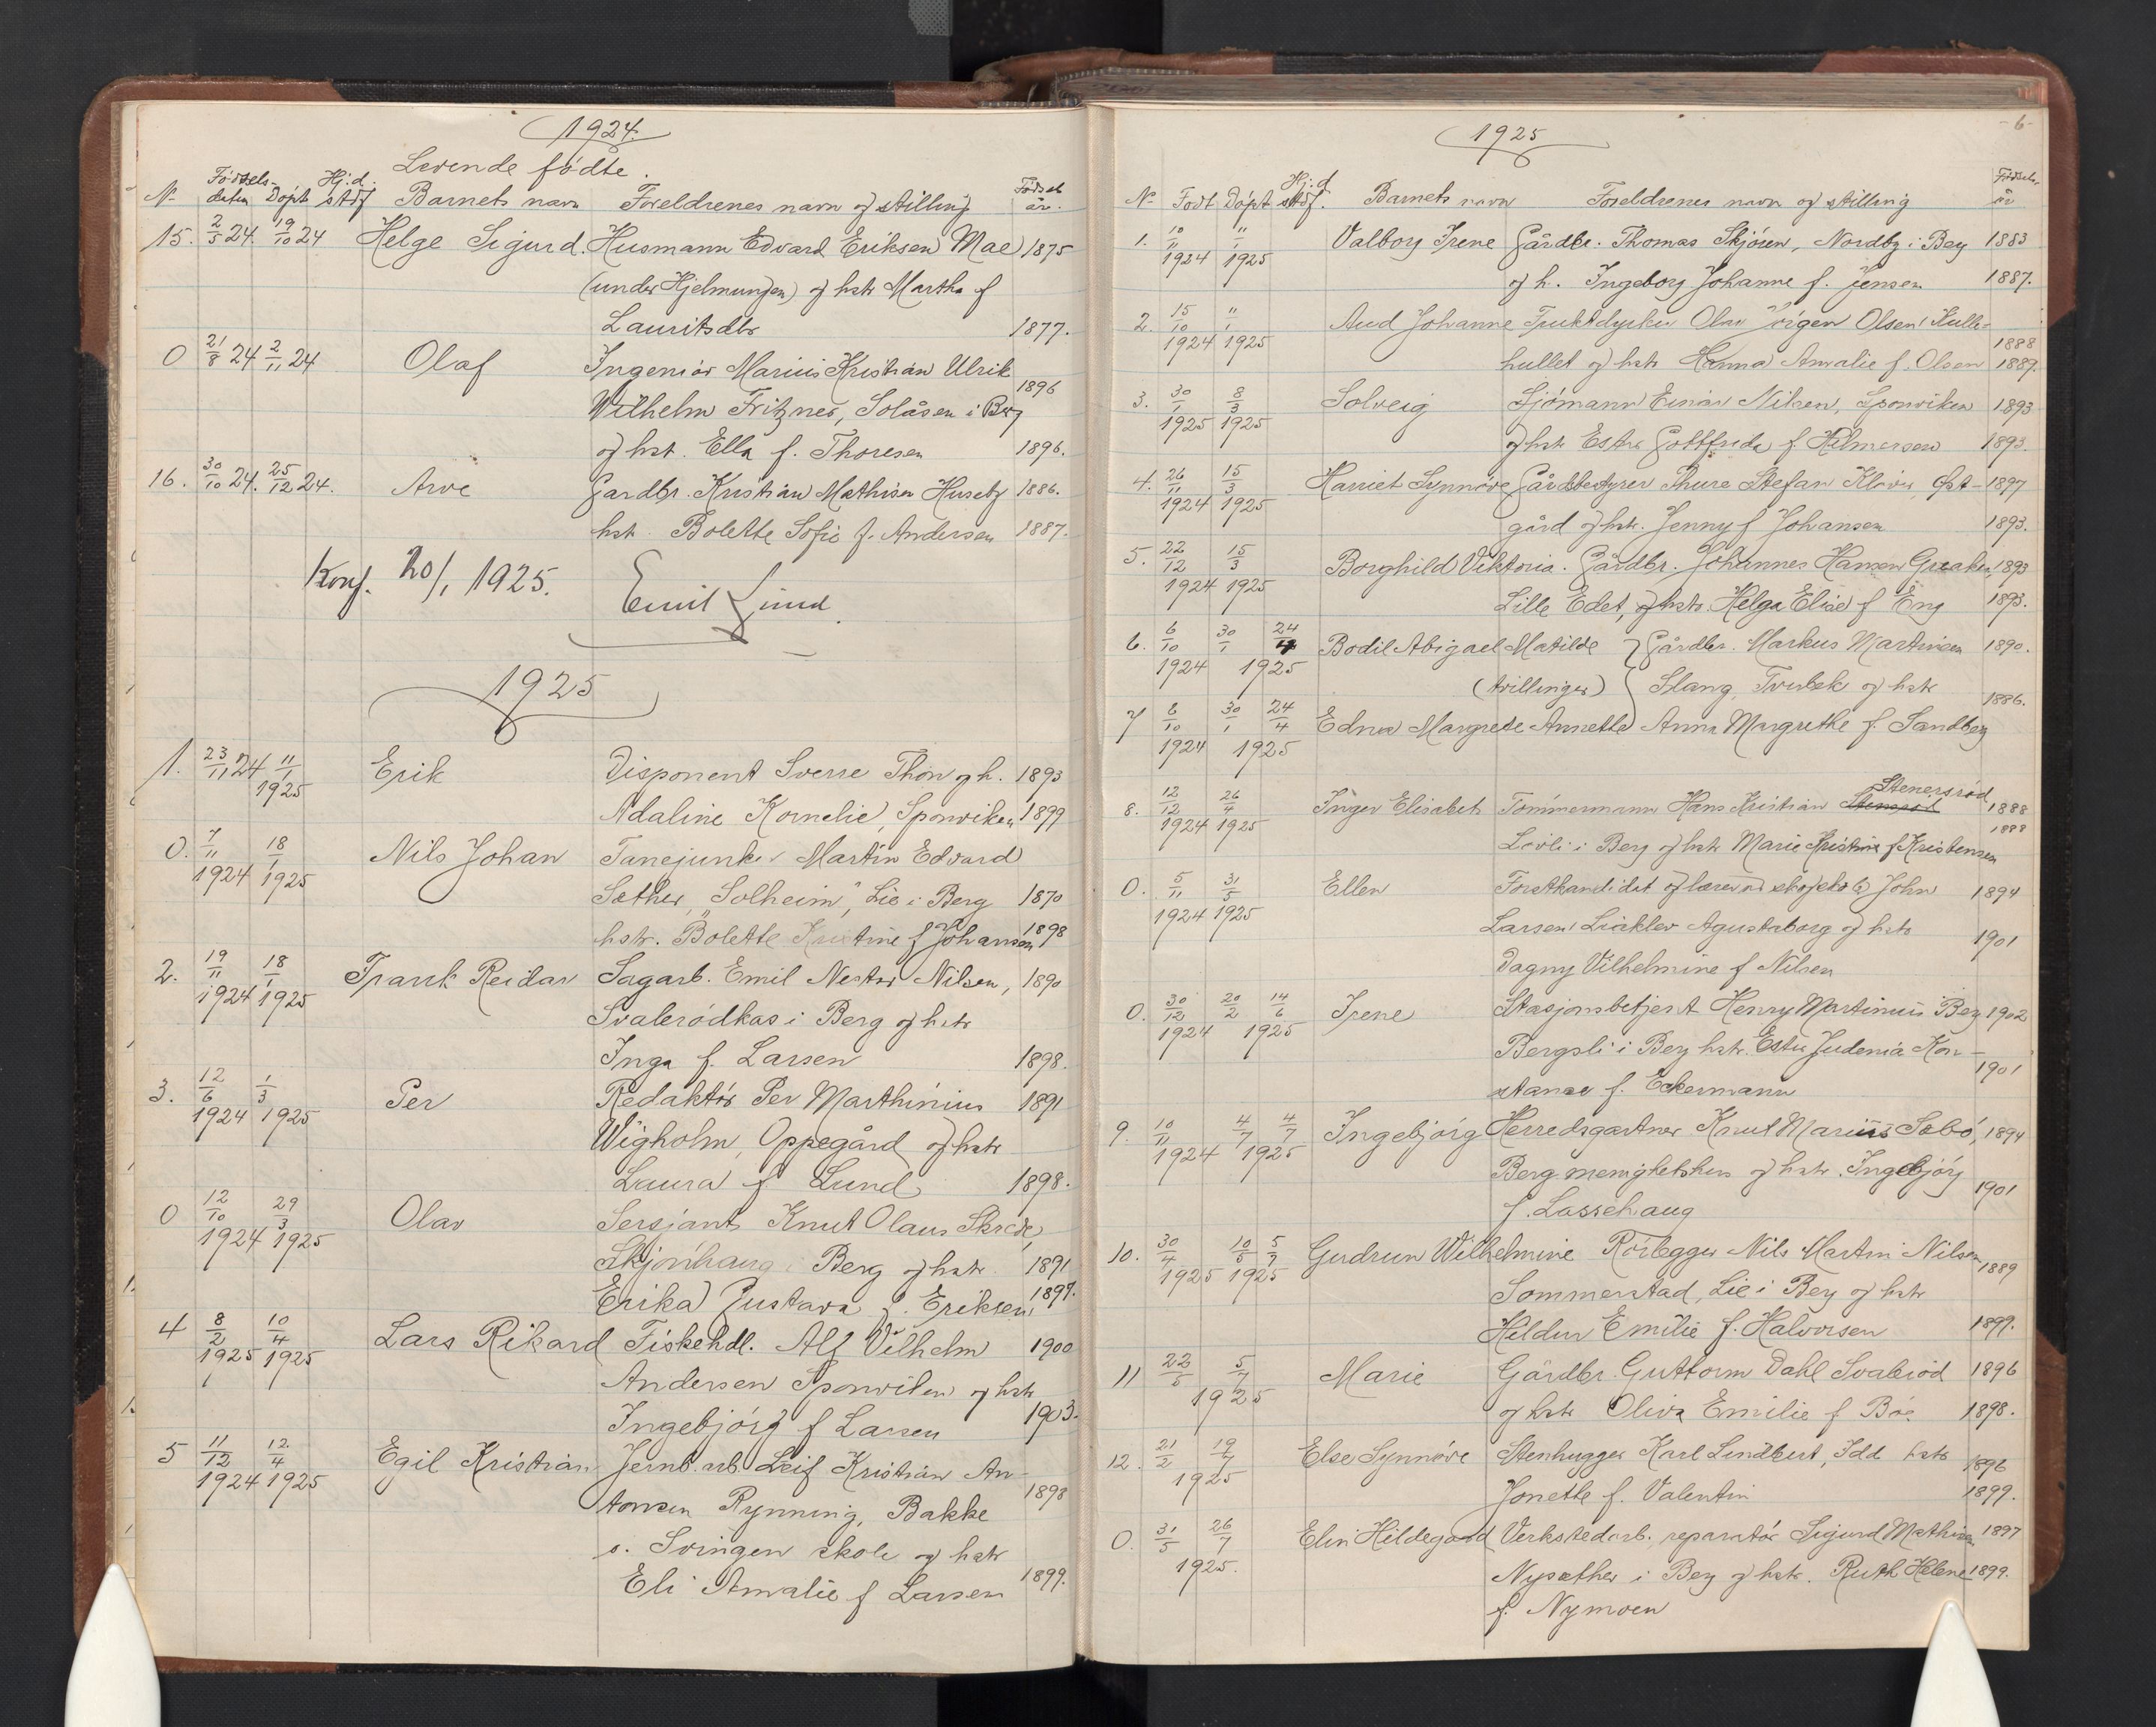 1924.
Levende fødte.
No Fødsels-daten Døpt Hj.d. stdf Barnets navn Foreldrenes navn og stilling Fødsels år.
15. 2/5 24. 19/10 24 Helge Sigurd. Husmann Edvard Eriksen Mae 1875
(under Hjelmungen) og hstr Martha f
Lauritsdtr 1877.
0 21/8 24 2/11 24 Olaf Ingeniør Marius Kristian Ulrik
Wilhelm Fritzner, Solåsen i Berg 1896
og hst. Ella f. Thoresen 1896.
16. 30/10 24. 25/12 24. Arve Gardbr. Kristian Mathisen Huseby 1886.
hst. Bolette Sofie f. Andersen 1887.
Konf. 20/1 1925. Emil Lund.
1925
1. 23/11 24 11/1 1925 Erik Disponent Sverre Thon og h. 1893
Adaline Kornelie, Sponviken 1899
0. 7/11 1924 18/1 1925 Nils Johan Fanejunker Martin Edvard
Sæther, "Solheim", Lie i Berg 1870
hstr. Bolette Kristine f Johansen 1898
2. 19/11 1924 18/1 1925 Frank Reidar Sagarb. Emil Nestor Nilsen, 1890
Svalerødkas i Berg og hstr
Inga f. Larsen 1898.
3. 12/6 1924 1/3 1925 Per Redaktør Per Marthinius 1891
Wigholm, Oppegård og hstr
Laura f Lund 1898.
0 12/10 1924 29/3 1925 Olav Sersjant Knut Olaus Skrede,
Skjønhaug i Berg og hstr. 1891
Erika Gustava f. Eriksen 1897.
4 8/2 1925 10/4 1925 Lars Rikard Fiskehdl. Alf Vilhelm 1900
Andersen Sponviken og hstr
Ingebjørg f Larsen 1903.
5 11/12 1924 12/4 1925 Egil Kristian Jernb.arb. Leif Kristian An-
tonsen Rynning, Bakke 1898
v. Svingen skole og hstr
Eli Amalie f Larsen 1899.
-6-
1925
No Født Døpt Hj.d. stdf. Barnets navn Foreldrenes navn og stilling Fødsels år
1. 10/11 1924 11/1 1925 Valborg Irene Gårdbr. Thomas Skjøren, Nordby i Berg 1883
og h. Ingeborg Johanne f. Jensen 1887.
2. 15/10 1924 11/1 1925 Aud Johanne Fruktdyrker Olav Jørgen Olsen Kulle-
hullet og hstr Hanna Amalie f. Olsen 1888 1889.
3. 30/1 1925 8/3 1925 Solveig Sjømann Einar Nilsen, Sponviken 1893
og hstr Ester Gottfrida f. Hilmersen 1893.
4. 26/11 1924 15/3 1925 Harriet Synnøve Gårdbestyrer Thure Stefan Klover, Øst- 1897
gård og hstr. Jenny f Johansen 1893.
5. 22/12 1924 15/3 1925 Borghild Viktoria. Gårdbr. Johannes Hansen Greaker, 1893
Lille Edet, og hstr. Helga Elise f Eng 1893.
6. 6/10 1924 30/1 24/4 1925 Bodil Abigael Matilde Gårdbr. Markus Martinsen 1890.
(tvillinger) Slang, Torsbek og hstr 1886.
7 6/10 1924 30/1 24/4 1925 Edna Margrete Annette Anna Margrethe f. Sandberg
8. 12/12 1924 26/4 1925 Inger Elisabet Tømmermann Hans Kristian Stenersrød 1888
Løvli i Berg og hstr Marie Kristine f Kristensen 1888
0. 5/11 1924 31/5 1925 Ellen Forstkandidat og lærer ved skogskole John 1894
Larsen Liaklev Agustaborg og hstr 1901
Dagny Vilhelmine f Nilsen
0. 30/12 1924 20/2 14/6 1925 Irene Stasjonsbetjent Henry Martinius Berg 1902
Bergsli i Berg hstr. Ester Judenia Kon-
stanse f. Eckermann 1901
9. 10/11 1924 4/7 4/7 1925 Ingebjørg Herredsgartner Knut Marius Sæbø, 1894
Berg menighetshus og hstr. Ingebjørg 1901
f. Lassehaug
10. 30/4 1925 10/5 5/7 1925 Gudrun Wilhelmine Rørlegger Nils Martin Nilsen 1889
Sommerstad, Lie i Berg og hstr
Hildur Emilie f. Halvorsen 1899.
11 22/5 5/7 1925 Marie Gårdbr. Guttorm Dahl Svalerød 1896
og hstr Oliva Emilie f Bøe 1898.
12. 21/2 19/7 1925 Else Synnøve Stenhugger Karl Lindkert, Idd hstr 1896
Jonette f. Valentin 1899.
0. 31/5 26/7 1925. Elin Hildegard Verkstedarb. reparatør Sigurd Mathisen 1897
Nysæther i Berg og hstr. Ruth Helene 1899.
f. Nymoen